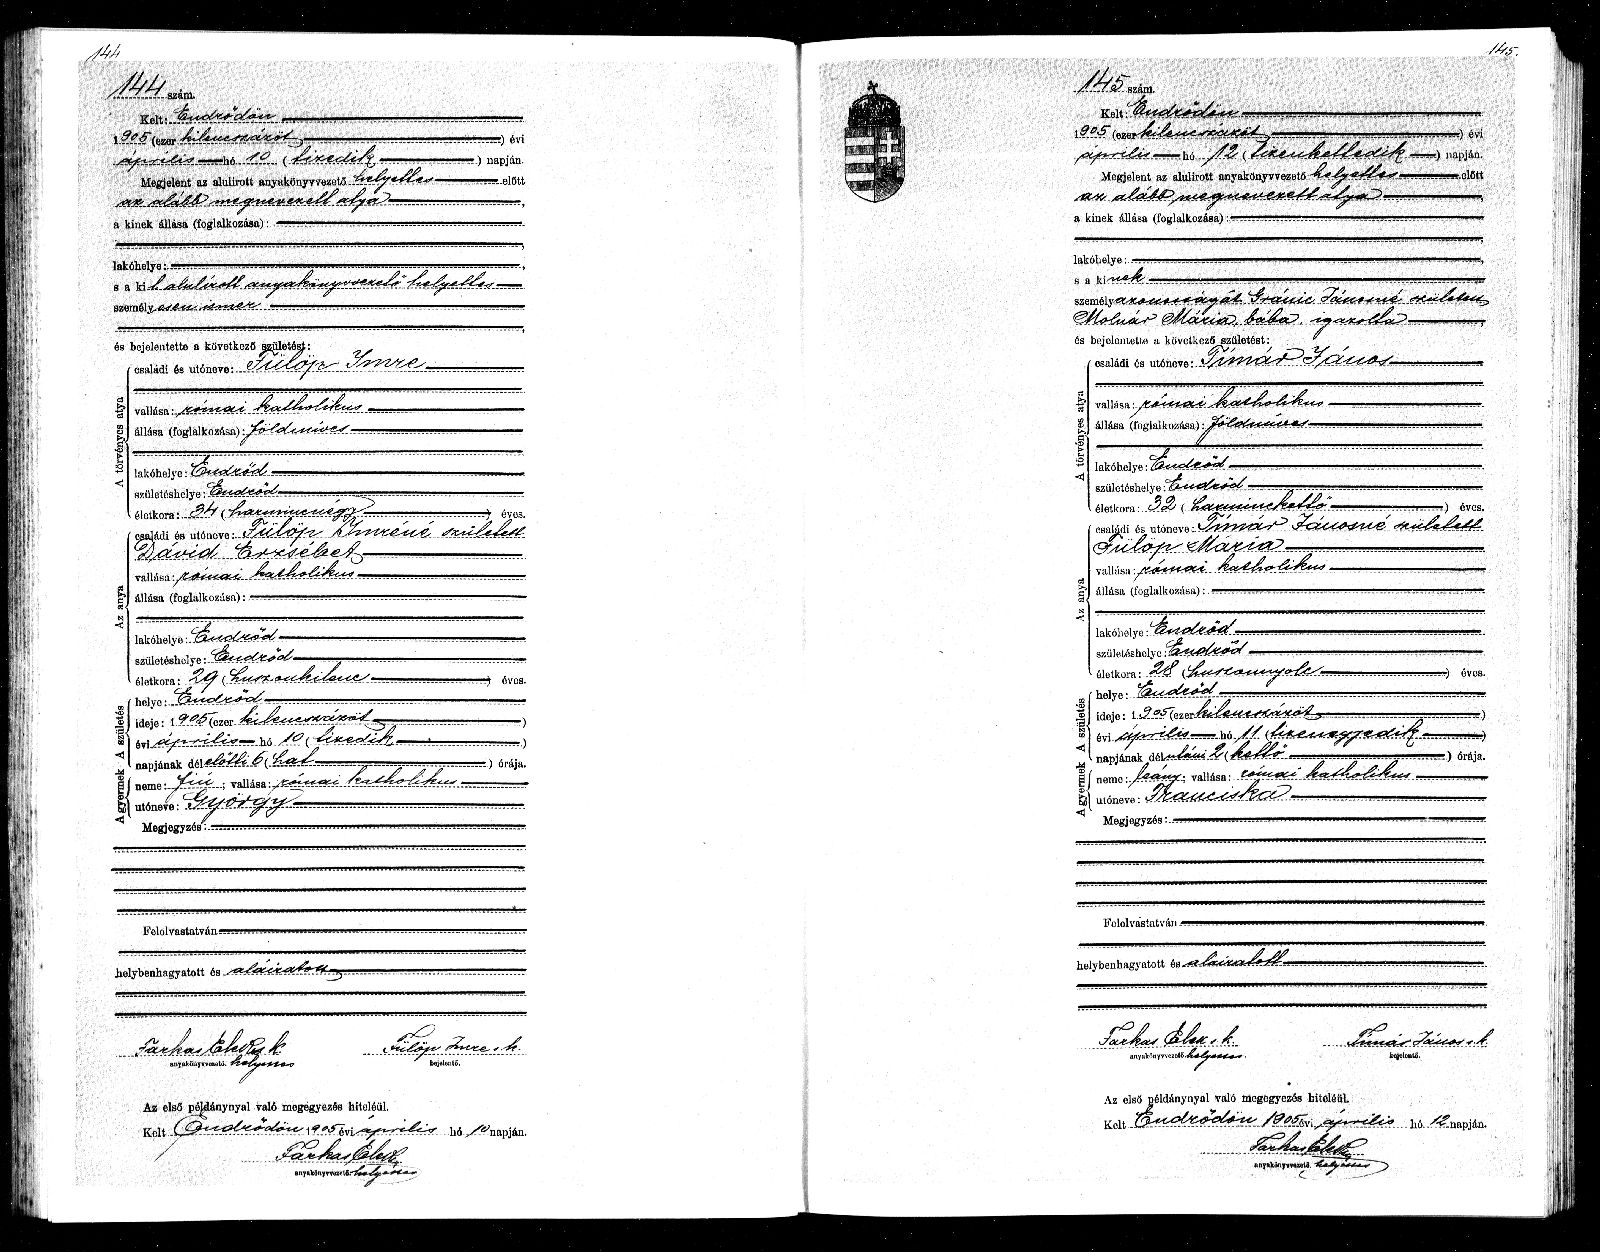 144
144 szám.
Kelt: Endrődön
1905 (ezer kilencszázöt) évi
április hó 10 (tizedik) napján.
Megjelent az alulirott anyakönyvvezető helyettes előtt
az alább megnevezett atya,
a kinek állása (foglalkozása):
lakóhelye:
s a kit alulírott anyakönyvvezető helyettes
személyesen ismer
és bejelentette a következő születést:
A törvényes atya
családi és utóneve: Fülöp Imre
vallása: római katholikus
állása (foglalkozása): földmíves
lakóhelye: Endrőd
születéshelye: Endrőd
életkora: 34 (harmincnégy) éves.
Az anya
családi és utóneve: Fülöp Imréné született
Dávid Erzsébet
vallása: római katholikus
állása (foglalkozása):
lakóhelye: Endrőd
születéshelye: Endrőd
életkora: 29 (huszonkilenc) éves.
A születés
helye: Endrőd
ideje: 1905 (ezer kilencszázöt)
évi április hó 10 (tizedik)
napjának délelőtti 6 (hat) órája.
A gyermek
neme: fiú; vallása: római katholikus
utóneve: György
Megjegyzés:
Felolvastatván
helybenhagyatott és aláiratott
Farkas Elek s. k. Fülöp Imre s. k.
anyakönyvvezető. helyettes bejelentő.
Az első példánynyal való megegyezés hiteléül.
Kelt Endrődön 1905 évi április hó 10 napján.
Farkas Elek
anyakönyvvezető. helyettes
145.
145 szám.
Kelt: Endrődön
1905 (ezer kilencszázöt) évi
április hó 12 (tizenkettedik) napján.
Megjelent az alulirott anyakönyvvezető helyettes előtt
az alább megnevezett atya,
a kinek állása (foglalkozása):
lakóhelye:
s a kinek
személyazonosságát Gránic Jánosné született
Molnár Mária bába igazolta
és bejelentette a következő születést:
A törvényes atya
családi és utóneve: Tímár János
vallása: római katholikus
állása (foglalkozása): földmíves
lakóhelye: Endrőd
születéshelye: Endrőd
életkora: 32 (harminckettő) éves.
Az anya
családi és utóneve: Tímár Jánosné született
Fülöp Mária
vallása: római katholikus
állása (foglalkozása):
lakóhelye: Endrőd
születéshelye: Endrőd
életkora: 28 (huszonnyolc) éves.
A születés
helye: Endrőd
ideje: 1905 (ezer kilencszázöt)
évi április hó 11 (tizenegyedik)
napjának délutáni 2 (kettő) órája.
A gyermek
neme: leány; vallása: római katholikus
utóneve: Franciska
Megjegyzés:
Felolvastatván
helybenhagyatott és aláiratott
Farkas Elek s. k. Tímár János s. k.
anyakönyvvezető. helyettes. bejelentő.
Az első példánynyal való megegyezés hiteléül.
Kelt Endrődön 1905 évi április hó 12 napján.
Farkas Elek
anyakönyvvezető. helyettes